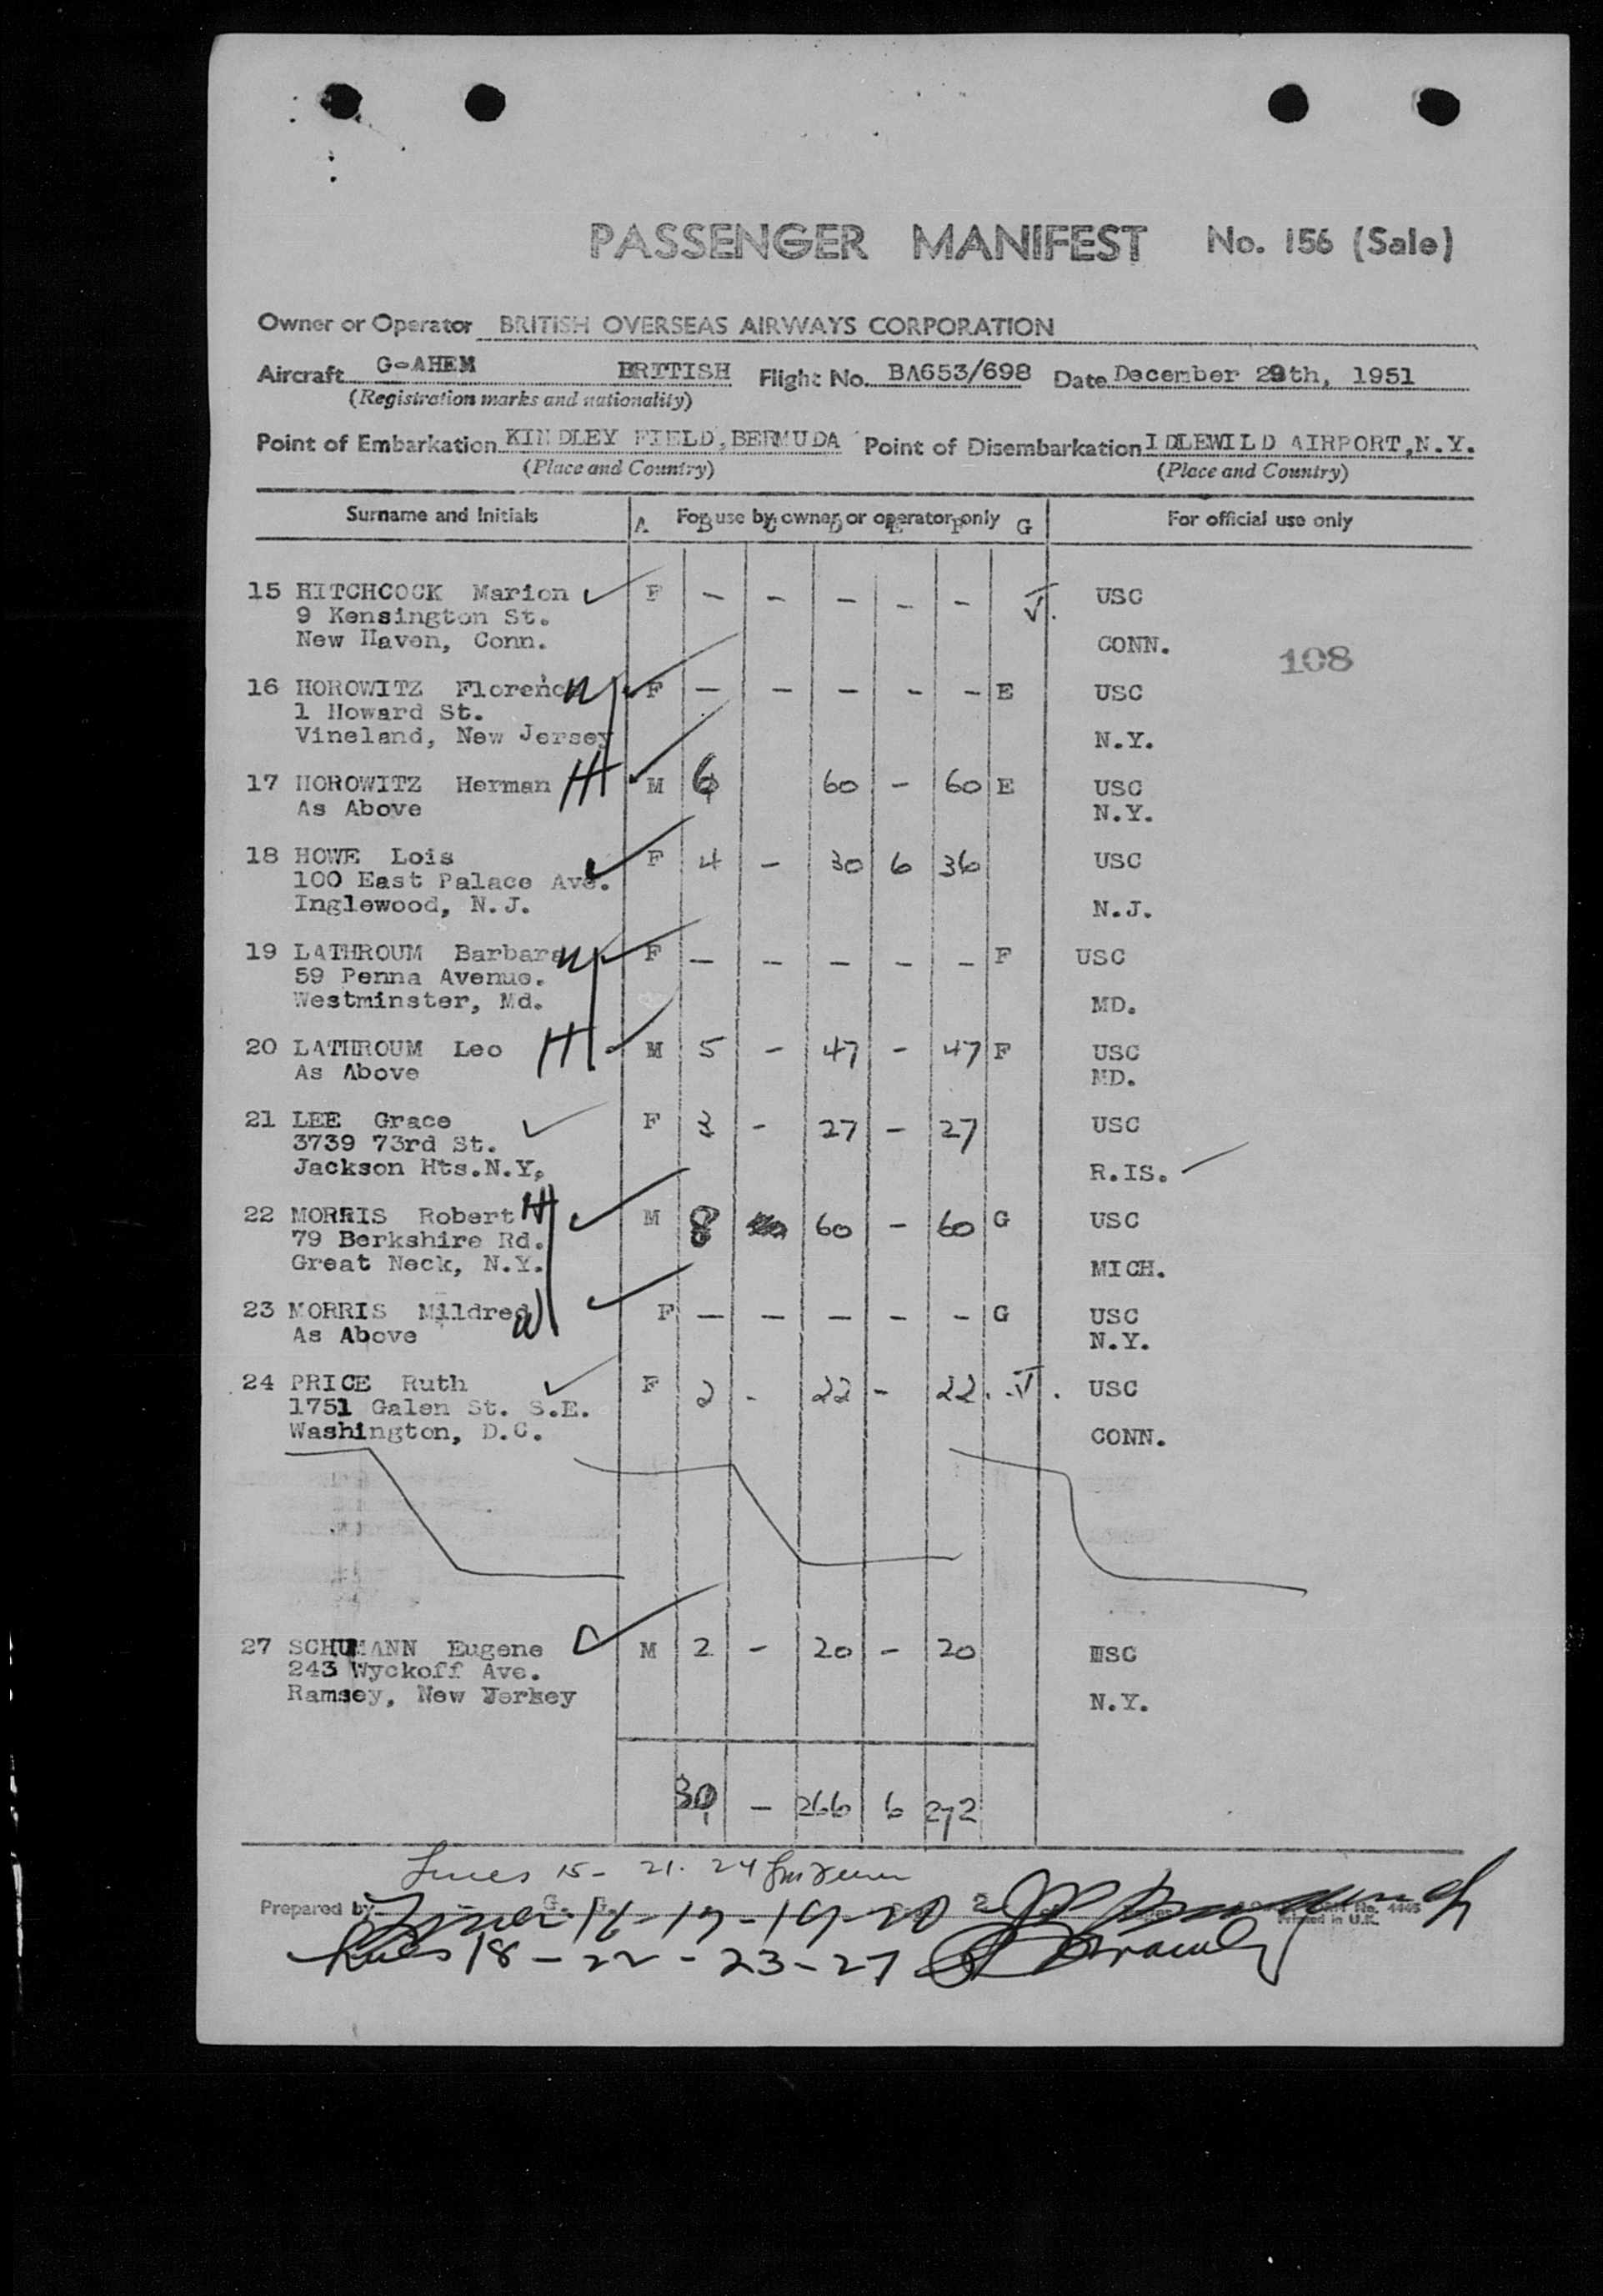 PASSENGER MANIFEST No. 156 (Sale)
Owner or Operator BRITISH OVERSEAS AIRWAYS CORPORATION
Aircraft G-AHEM BRITISH Flight No. BA653/698 Date December 29th, 1951
(Registration marks and nationality)
Point of Embarkation KINDLEY FIELD, BERMUDA Point of Disembarkation IDLEWILD AIRPORT, N.Y.
(Place and Country) (Place and Country)
Surname and Initials For use by owner or operator only For official use only
A B C D E F G
15 HITCHCOCK Marion F - - - - - V. USC
9 Kensington St.
New Haven, Conn. CONN.
108
16 HOROWITZ Florence W F - - - - - E USC
1 Howard St.
Vineland, New Jersey N.Y.
17 HOROWITZ Herman H M 6 60 - 60 E USC
As Above N.Y.
18 HOWE Lois F 4 - 30 6 36 USC
100 East Palace Ave.
Inglewood, N.J. N.J.
19 LATHROUM Barbara W F - - - - - F USC
59 Penna Avenue.
Westminster, Md. MD.
20 LATHROUM Leo H M 5 - 47 - 47 F USC
As Above MD.
21 LEE Grace F 3 - 27 - 27 USC
3739 73rd St.
Jackson Hts.N.Y. R.IS.
22 MORRIS Robert H M 8 60 - 60 G USC
79 Berkshire Rd.
Great Neck, N.Y. MICH.
23 MORRIS Mildred W F - - - - - G USC
As Above N.Y.
24 PRICE Ruth F 2 - 22 - 22 . V . USC
1751 Galen St. S.E.
Washington, D.C. CONN.
27 SCHUMANN Eugene M 2 - 20 - 20 USC
243 Wyckoff Ave.
Ramsey, New Jersey N.Y.
30 - 266 6 272
Lines 15 - 21. 24
Prepared by Lines 16-17-19-20
Printed in U.K.
Lines 18 - 22 - 23 - 27